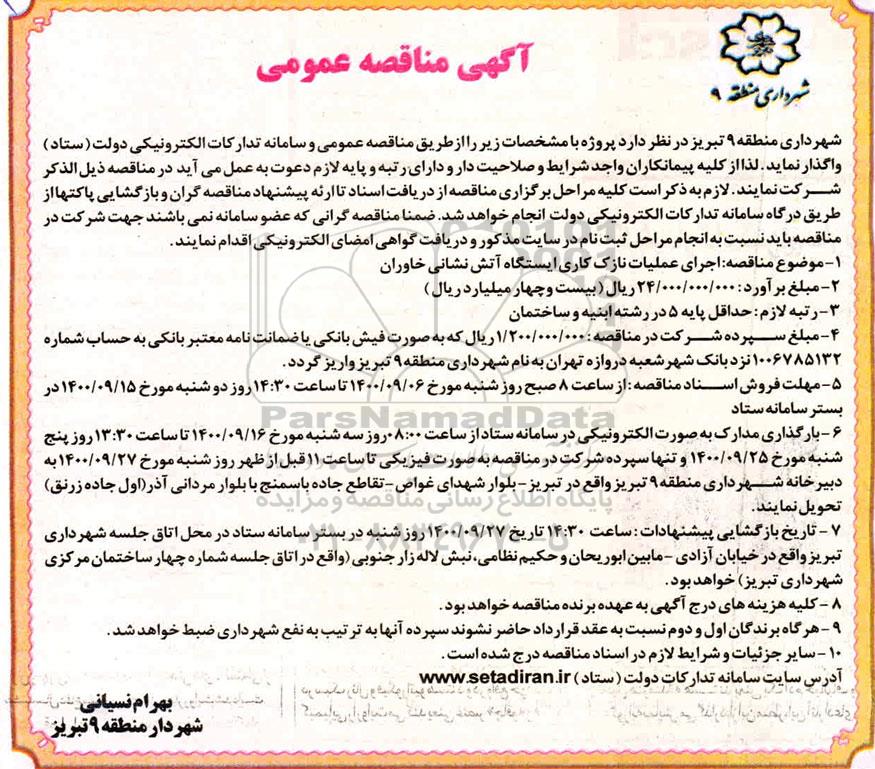 آگهی مناقصه عمومی
شهرداری منطقه ۹
شهرداری منطقه ۹ تبریز در نظر دارد پروژه با مشخصات زیر را از طریق مناقصه عمومی و سامانه تدارکات الکترونیکی دولت (ستاد)
واگذار نماید. لذا از کلیه پیمانکاران واجد شرایط و صلاحیت دار و دارای رتبه و پایه لازم دعوت به عمل می آید در مناقصه ذیل الذکر
شرکت نمایند. لازم به ذکر است کلیه مراحل برگزاری مناقصه از دریافت اسناد تا ارئه پیشنهاد مناقصه گران و بازگشایی پاکتها از
طریق درگاه سامانه تدارکات الکترونیکی دولت انجام خواهد شد. ضمنا مناقصه گرانی که عضو سامانه نمی باشند جهت شرکت در
مناقصه باید نسبت به انجام مراحل ثبت نام در سایت مذکور و دریافت گواهی امضای الکترونیکی اقدام نمایند.
۱-موضوع مناقصه: اجرای عملیات نازک کاری ایستگاه آتش نشانی خاوران
۲-مبلغ برآورد: ۲۴/۰۰۰/۰۰۰/۰۰۰ ریال (بیست و چهار میلیارد ریال)
۳-رتبه لازم: حداقل پایه ۵ در رشته ابنیه و ساختمان
۴-مبلغ سپرده شرکت در مناقصه: ۱/۲۰۰/۰۰۰/۰۰۰ ریال که به صورت فیش بانکی یا ضمانت نامه معتبر بانکی به حساب شماره
۱۰۰۶۷۸۵۱۳۲ نزد بانک شهر شعبه دروازه تهران به نام شهرداری منطقه ۹ تبریز واریز گردد.
۵-مهلت فروش اسناد مناقصه: از ساعت ۸ صبح روز شنبه مورخ ۱۴۰۰/۰۹/۰۶ تا ساعت ۱۴:۳۰ روز دو شنبه مورخ ۱۴۰۰/۰۹/۱۵ در
بستر سامانه ستاد
۶-بارگذاری مدارک به صورت الکترونیکی در سامانه ستاد از ساعت ۰۸:۰۰ روز سه شنبه مورخ ۱۴۰۰/۰۹/۱۶ تا ساعت ۱۳:۳۰ روز پنج
شنبه مورخ ۱۴۰۰/۰۹/۲۵ و تنها سپرده شرکت در مناقصه به صورت فیزیکی تا ساعت ۱۱ قبل از ظهر روز شنبه مورخ ۱۴۰۰/۰۹/۲۷ به
دبیرخانه شهرداری منطقه ۹ تبریز واقع در تبریز-بلوار شهدای غواص-تقاطع جاده باسمنج با بلوار مردانی آذر (اول جاده زرنق)
تحویل نمایند.
۷-تاریخ بازگشایی پیشنهادات: ساعت ۱۴:۳۰ تاریخ ۱۴۰۰/۰۹/۲۷ روز شنبه در بستر سامانه ستاد در محل اتاق جلسه شهرداری
تبریز واقع در خیابان آزادی -مابین ابوریحان و حکیم نظامی، نبش لاله زار جنوبی (واقع در اتاق جلسه شماره چهار ساختمان مرکزی
شهرداری تبریز) خواهد بود.
۸-کلیه هزینه های درج آگهی به عهده برنده مناقصه خواهد بود.
۹-هر گاه برندگان اول و دوم نسبت به عقد قرارداد حاضر نشوند سپرده آنها به ترتیب به نفع شهرداری ضبط خواهد شد.
۱۰-سایر جزئیات و شرایط لازم در اسناد مناقصه درج شده است.
آدرس سایت سامانه تدارکات دولت (ستاد) www.setadiran.ir
بهرام نسبانی
شهردار منطقه ۹ تبریز
ParsNamadData
پایگاه اطلاع رسانی مناقصه و مزایده